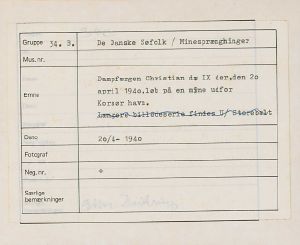 Gruppe 34. B. De Danske Søfolk / Minesprænghinger
Mus.nr.
Emne Dampfærgen Christian dm IX der,den 20
april 1940,løb på en mine udfor
Korsør havn.
Længere billedeserie findes U/ Storebælt
Dato 20/4- 1940
Fotograf
Neg.nr. +
Særlige
bemærkninger